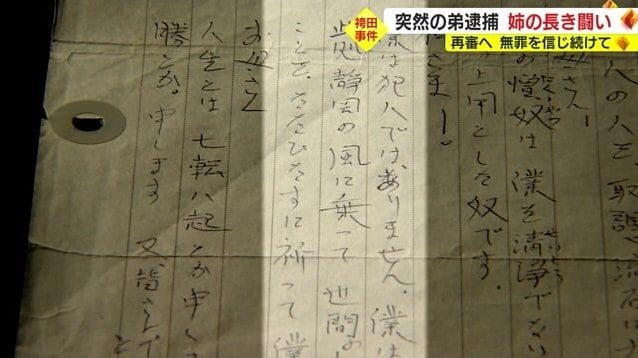 袴田
事件
突然の弟逮捕 姉の長き闘い
再審へ 無罪を信じ続けて
人の人を取調
母さん！
の憎い奴は 僕を清浄でない
用とした奴です。
さま！。
僕は犯人ではありません。僕は
此処静岡の風に乗って 世間の
ことを。ただひたすらに祈って 僕
お母さん
人生とは 七転八起とか申して
勝とか。申します 又、皆さんで
と